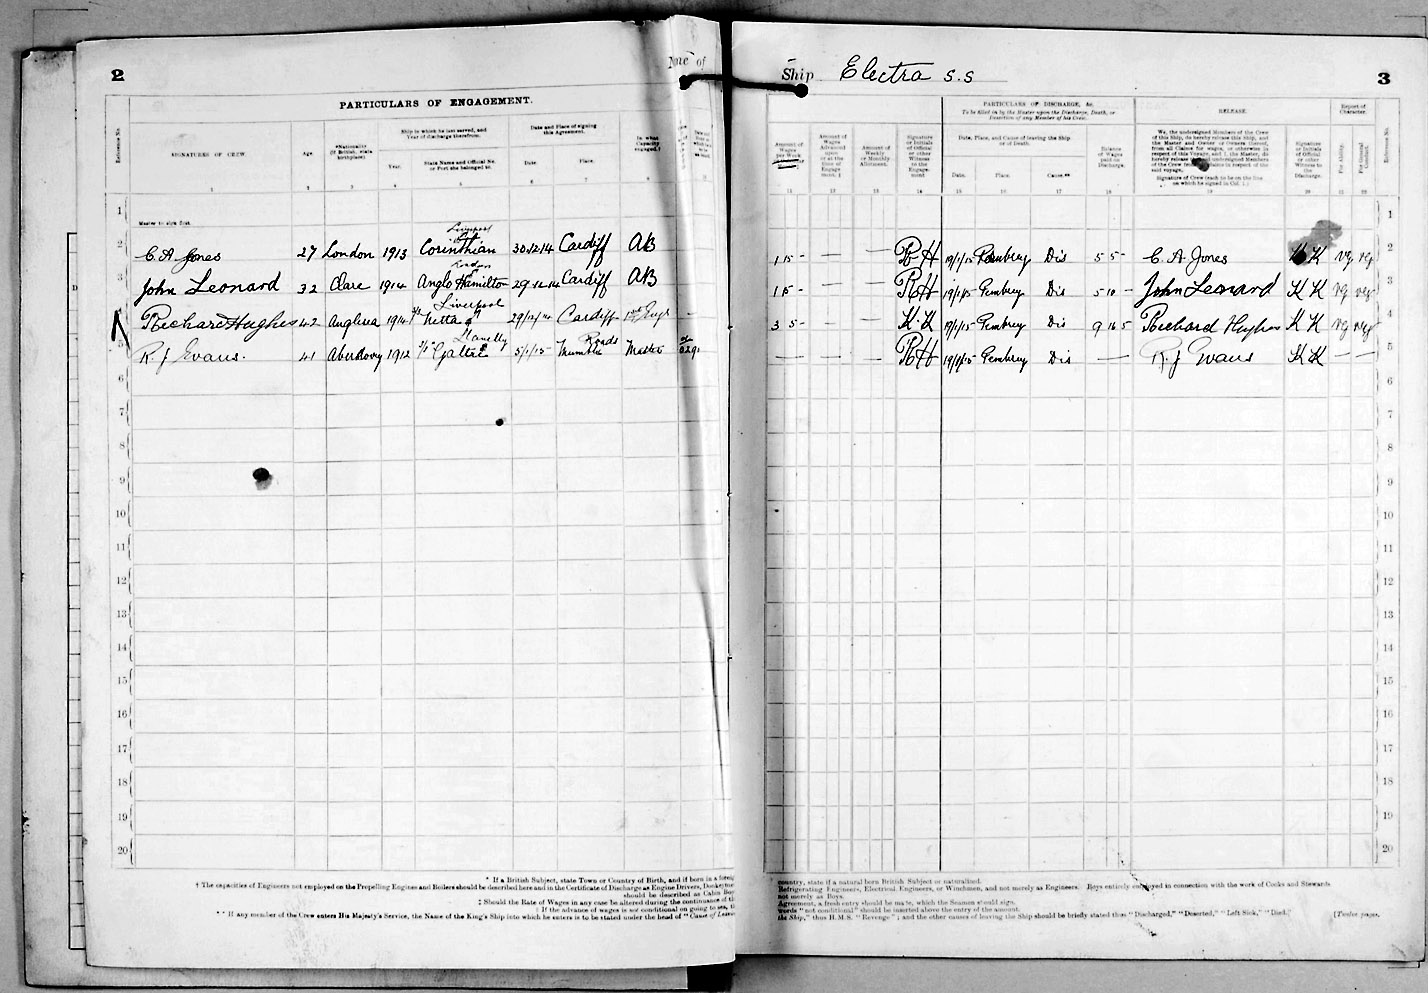 2
PARTICULARS OF ENGAGEMENT.
Reference No.
SIGNATURES OF CREW
Age
*Nationality
(If British, state
birthplace).
Ship in which he last served, and
Year of discharge therefrom.
Year.
State Name and Official No.
or Port she belonged to.
Date and Place of signing
this Agreement.
Date.
Place.
In what
Capacity
engaged.†
1 2 3 4 5 6 7 8
1
Master to sign first.
Liverpool
2 C A Jones 27 London 1913 Corinthian 30.12.14 Cardiff AB
London
3 John Leonard 32 Clare 1914 Anglo Hamilton 29.12.14 Cardiff AB
Liverpool
4 Richard Hughes 42 Anglesea 1914 S/S Netta 29/12/14 Cardiff 1st Engr
Llanelly Roads
5 R. J Evans. 41 Aberdovey 1912 5/1/15 Mumbles Master
6
7
8
9
10
11
12
13
14
15
16
17
18
19
20
* If a British Subject, state Town or Country of Birth, and if born in a foreign
† The capacities of Engineers not employed on the Propelling Engines and Boilers should be described here and in the Certificate of Discharge as Engine Drivers,
should be described as Cabin
‡ Should the Rate of Wages in any case be altered during the continuance of
If the advance of wages is not conditional on going to sea,
** If any member of the Crew enters His Majesty's Service, the Name of the King's Ship into which he enters is to be stated under the head of "Cause of
Ship Electra S.S
3
Amount of
Wages
per Week
Amount of
Wages
Advanced
upon
or at the
time of
Engage-
ment. ‡
Amount of
Weekly
or Monthly
Allotment.
Signature
or Initials
of Official
or other
Witness
to the
Engage-
ment
PARTICULARS OF DISCHARGE, &c.
To be filled in by the Master upon the Discharge, Death, or
Desertion of any Member of his Crew.
Date, Place, and Cause of leaving the Ship
or of Death.
Date.
Place.
Cause.**
Balance
of Wages
paid on
Discharge.
RELEASE.
We, the undersigned Members of the Crew
of this Ship, do hereby release this Ship, and
the Master and Owner or Owners thereof,
from all Claims for wages, or otherwise in
respect of this Voyage, and I, the Master, do
hereby release the undersigned Members
of the Crew from all claims in respect of the
said voyage.
Signature of Crew (each to be on the line
on which he signed in Col. 1.)
Signature
or Initials
of Official
or other
Witness to
the
Discharge.
Report of
Character.
For Ability.
For General
Conduct.
Reference No.
11 12 13 14 15 16 17 18 19 20 21 22
1
1 15 - — — RH 19/1/15 Pembrey Dis 5 5 - C A Jones KK VG VG 2
1 15 - — — RH 19/1/15 Pembrey Dis 5 10 - John Leonard KK VG VG 3
3 5 - — — K.K 19/1/15 Pembrey Dis 9 16 5 Richard Hughes KK VG VG 4
— — — RH 19/1/15 Pembrey Dis — R. J Evans KK — — 5
6
7
8
9
10
11
12
13
14
15
16
17
18
19
20
country, state if a natural born British Subject or naturalized.
Refrigerating Engineers, Electrical Engineers, or Winchmen, and not merely as Engineers. Boys entirely employed in connection with the work of Cooks and Stewards
not merely as Boys.
Agreement, a fresh entry should be made, which the Seamen should sign.
words "not conditional" should be inserted above the entry of the amount.
the Ship," thus H.M.S. "Revenge"; and the other causes of leaving the Ship should be briefly stated thus "Discharged," "Deserted," "Left Sick," "Died."
[Twelve pages.